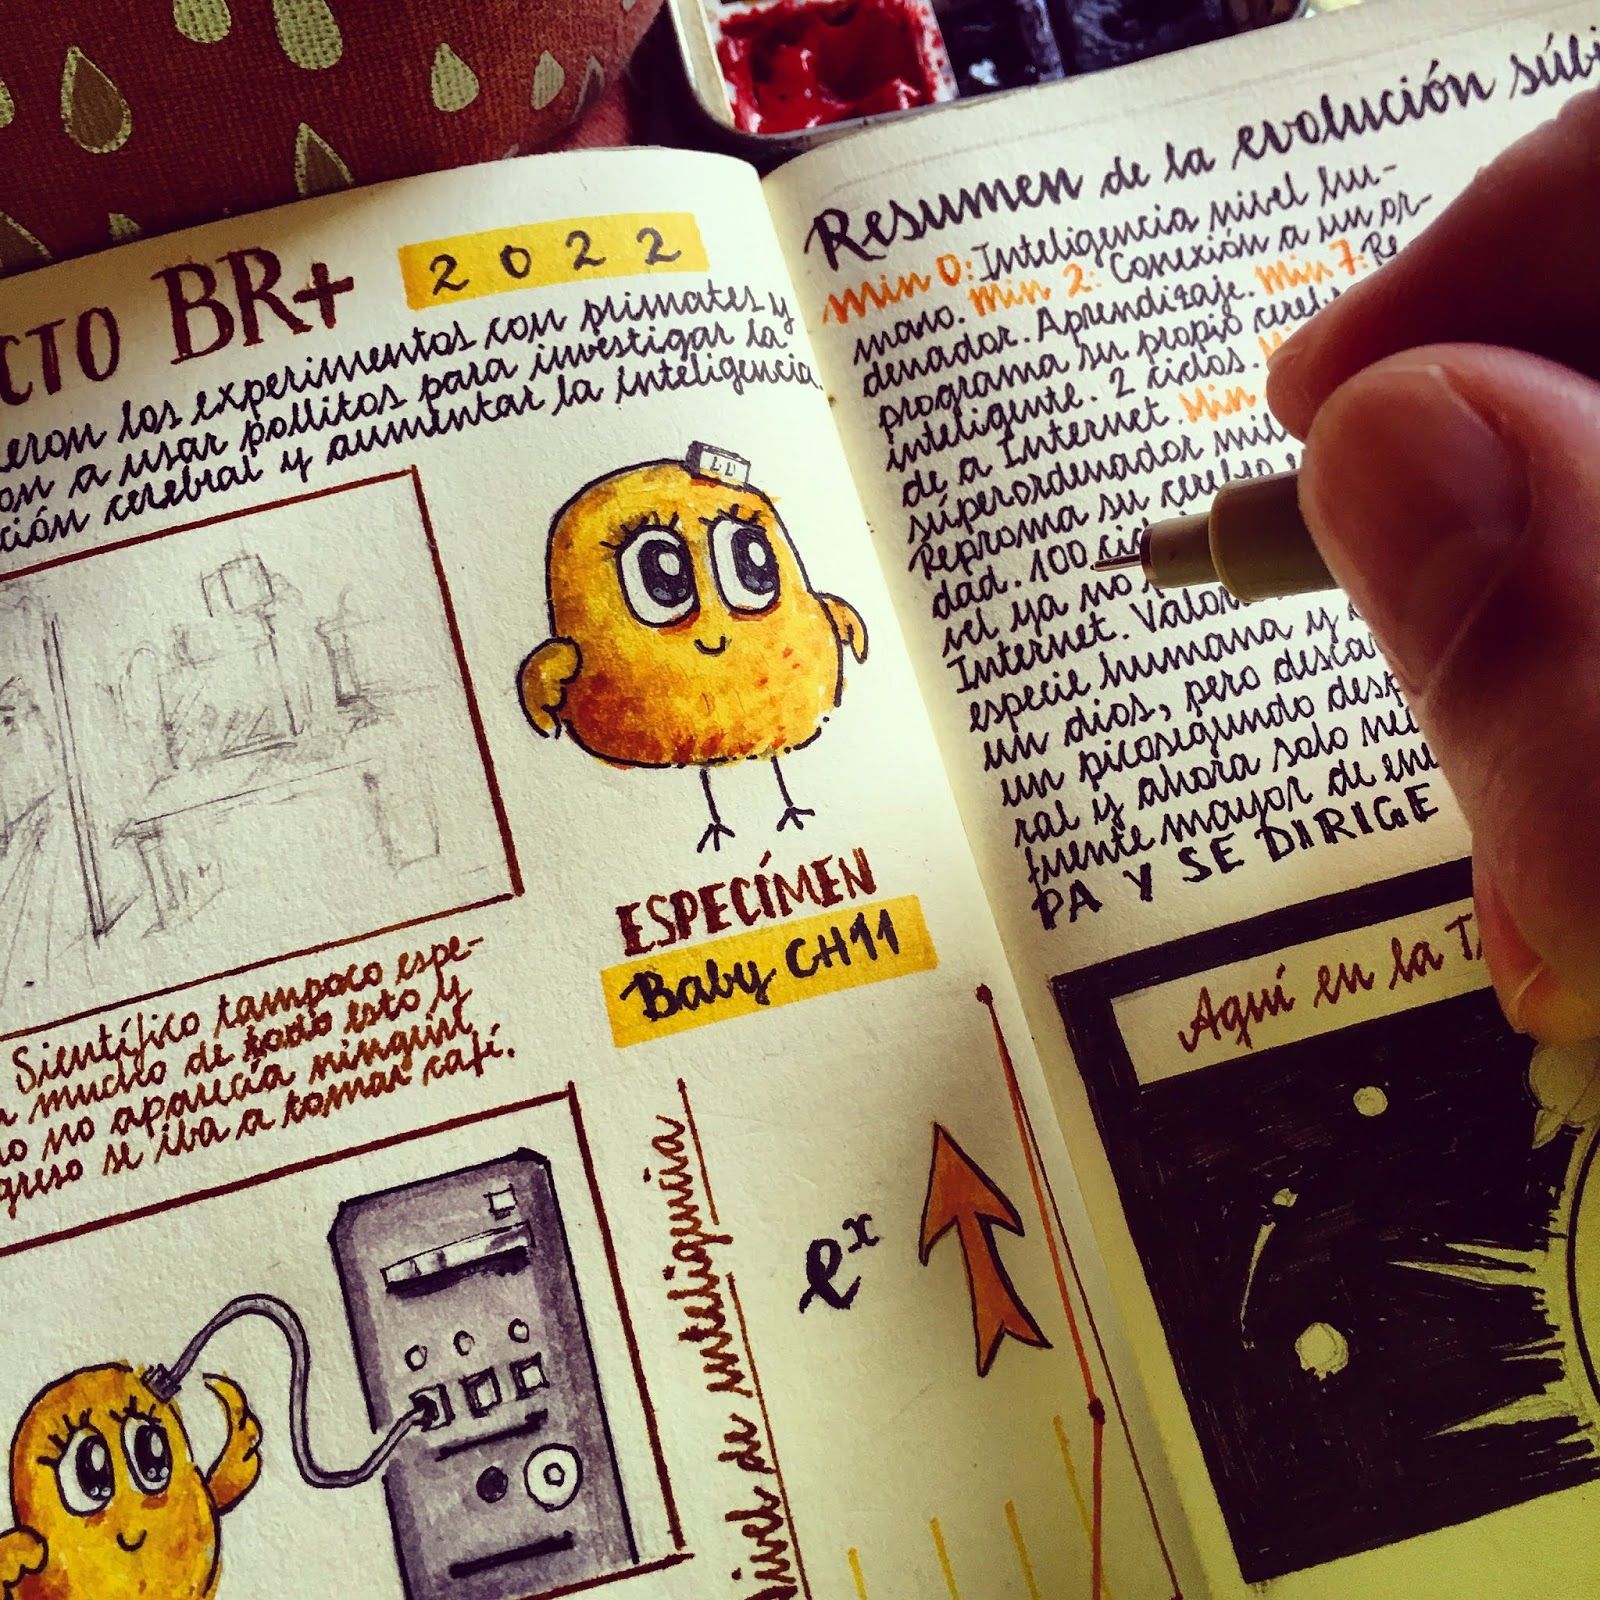 CTO BR+ 2022
los experimentos con primates y
a usar pollitos para investigar la
ción cerebral y aumentar la inteligencia.
ESPECÍMEN
Baby CH11
Sientífico tampoco espe-
mucho de todo esto y
no aparecía ningún
greso se iba a tomar café.
Nivel de inteligencia
e^x
Resumen de la evolución súbi
Min 0: Inteligencia nivel hu-
mano. Min 2: Conexión a un or-
denador. Aprendizaje. Min 7: Re
programa su propio
inteligente. 2 ciclos.
de a Internet. Min
súperordenador mil
Reproma su cerebro
dad. 100
vel ya no
Internet.
especie humana y
un dios, pero
un picosegundo
ral y ahora solo
fuente mayor de
PA Y SE DIRIGE
Aquí en la